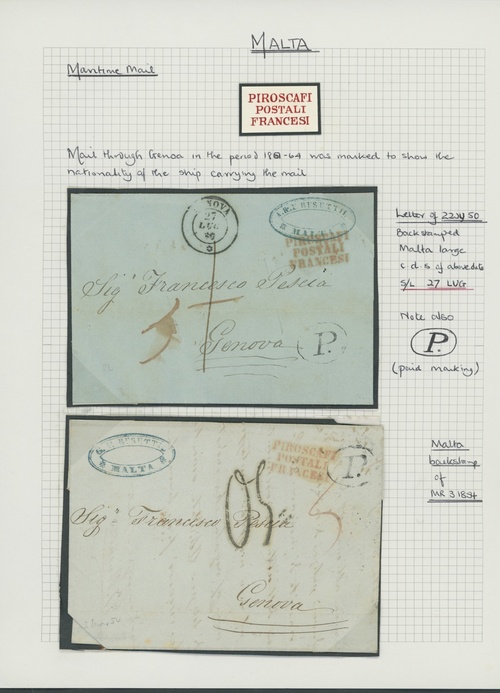 MALTA
Maritime Mail
PIROSCAFI
POSTALI
FRANCESI
Mail through Genoa in the period 18 -64 was marked to show the
nationality of the ship carrying the mail
NOVA
27
LUG
MALTA
PIROSCAFI
POSTALI
FRANCESI
Sigr Francesco Pescia
Genova
P.
Letter of 22 50
Backstamped
Malta large
c.d.s of above date
S/L 27 LUG
Note also
P.
(paid marking)
MALTA
PIROSCAFI
POSTALI
FRANCESI
P.
Sigr Francesco Pescia
Genova
Malta
backstamp
of
MR 3 1854